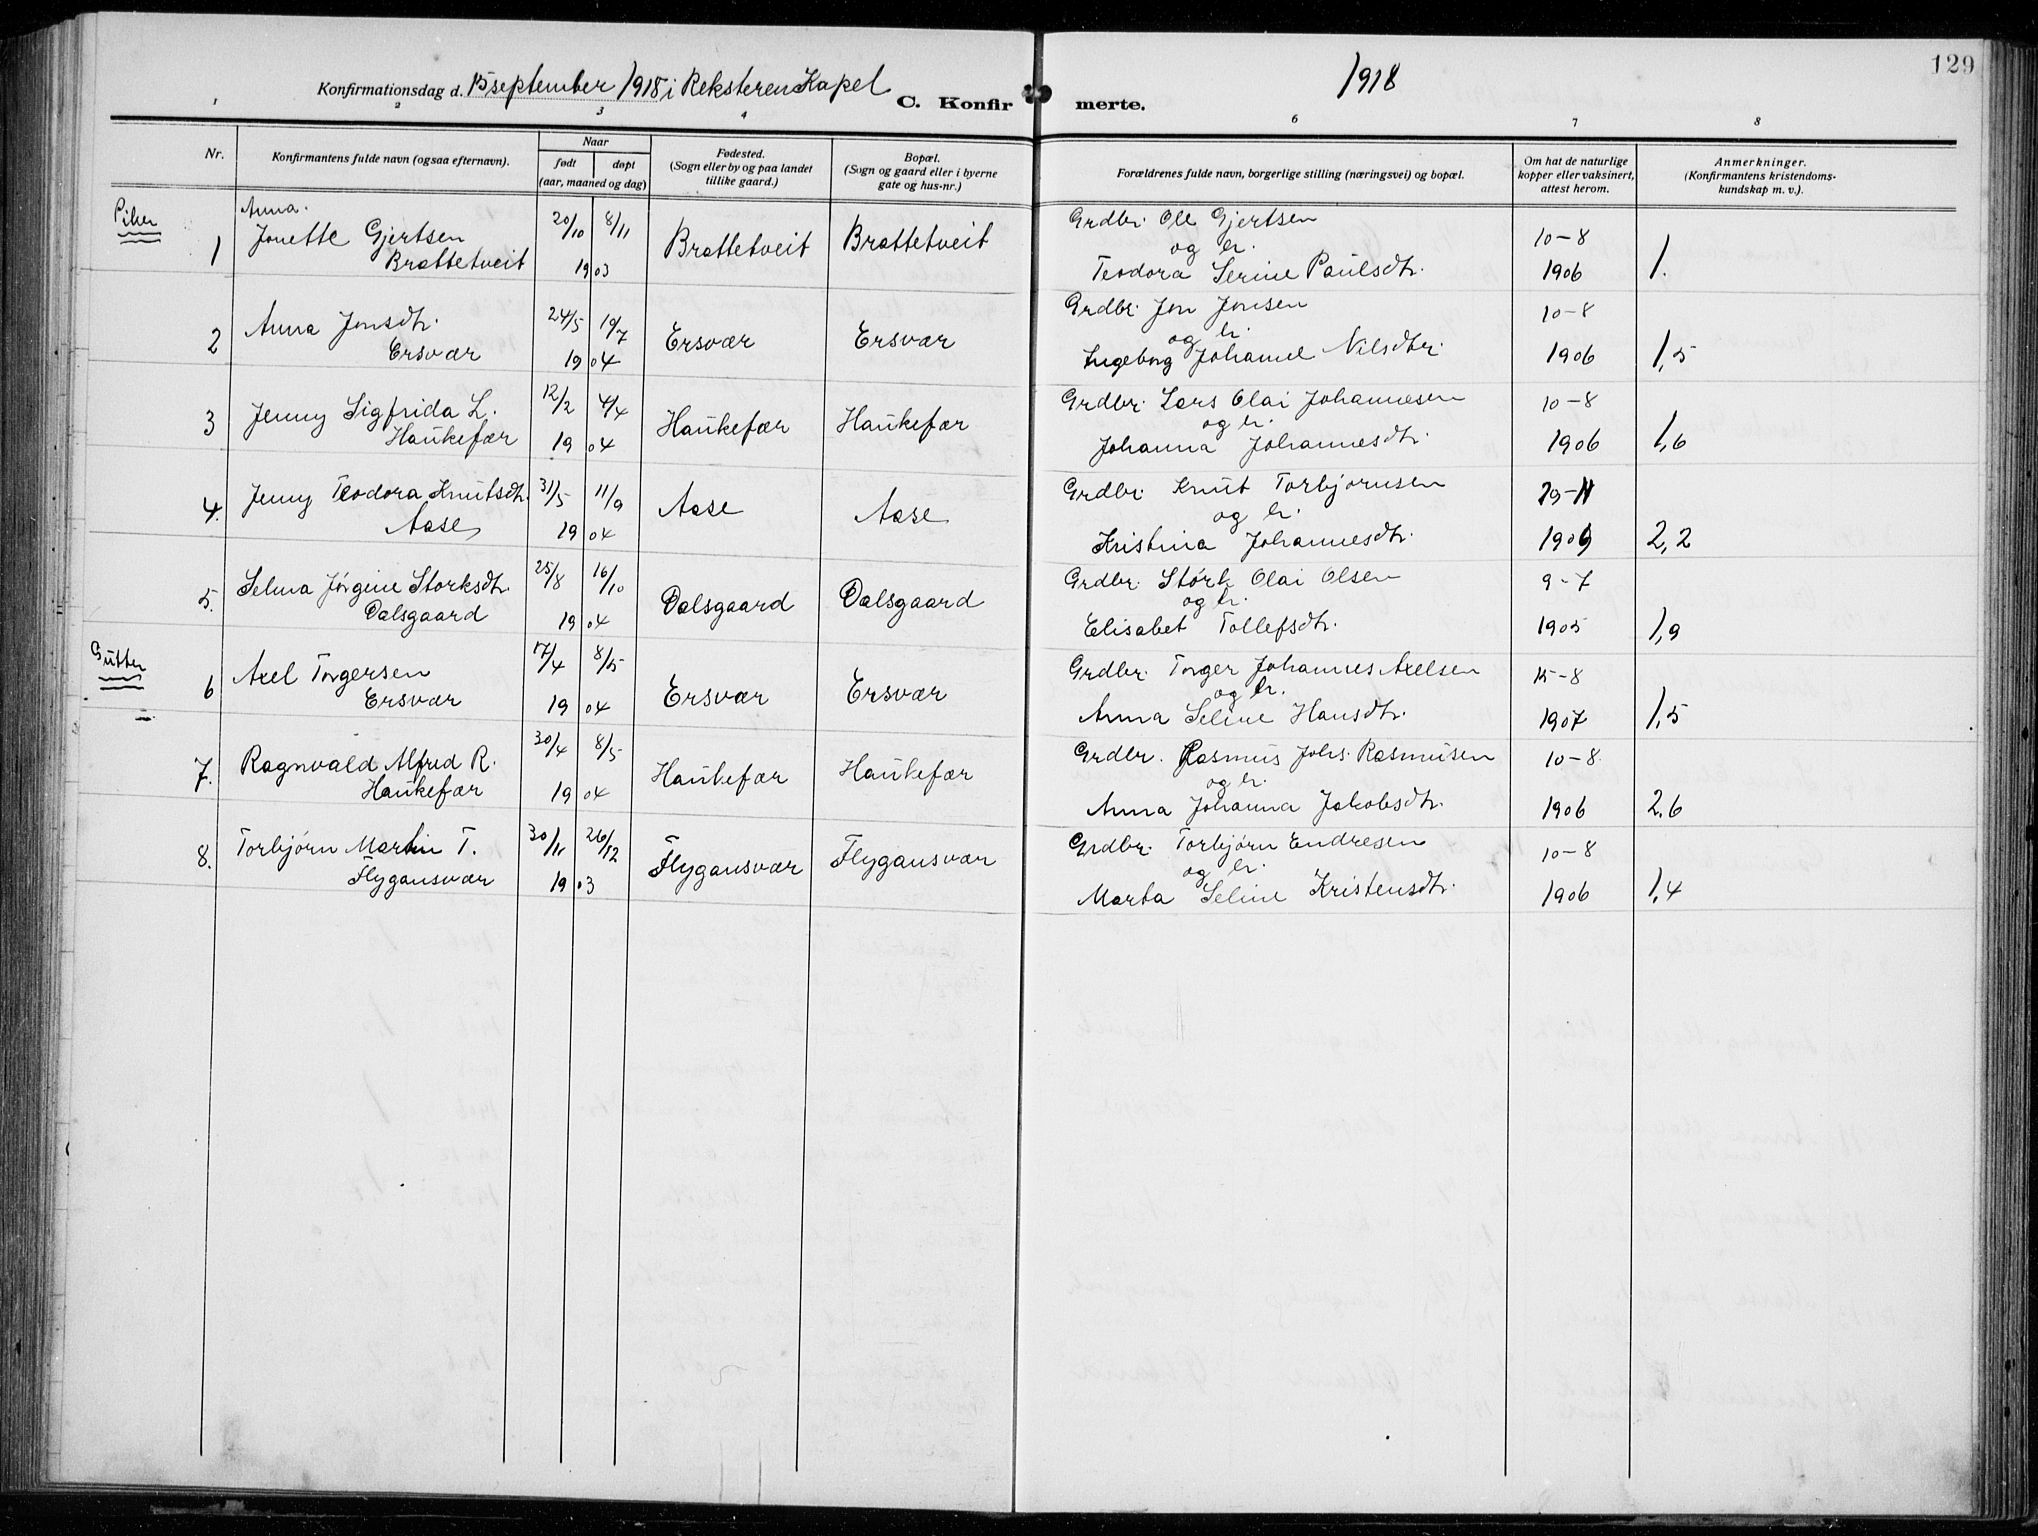 129
Konfirmationsdag d. 15 september 1918 i Reksteren Kapel
C. Konfirmerte.
1918
1 2 3 4 6 7 8
Nr.
Konfirmantens fulde navn (ogsaa efternavn).
Naar
født
døpt
(aar, maaned og dag)
Fødested.
(Sogn eller by og paa landet
tillike gaard.)
Bopæl.
(Sogn og gaard eller i byerne
gate og hus-nr.)
Forældrenes fulde navn, borgerlige stilling (næringsvei) og bopæl.
Om hat de naturlige
kopper eller vaksinert,
attest herom.
Anmerkninger.
(Konfirmantens kristendoms-
kundskap m. v.).
Piker
Anna.
1 Jonette Gjertsen 20/10 8/11 Brattetveit Brattetveit Grdbr. Ole Gjertsen 10-8
Brattetveit 1903 og h. Teodora Serine Paulsdtr. 1906 1.
2 Anna Jonsdtr. 24/5 19/7 Ersvær Ersvær Grdbr. Jon Jonsen 10-8
Ersvær 1904 og h. Ingeborg Johanne Nilsdtr. 1906 1,5
3 Jenny Sigfrida L. 12/2 4/4 Haukefær Haukefær Grdbr. Lars Olai Johannesen 10-8
Haukefær 1904 og h. Johanna Johannesdtr. 1906 1,6
4. Jenny Teodora Knutsdtr. 31/5 11/9 Aase Aase Grdbr. Knut Torbjørnsen
Aase 1904 og h. Kristina Johannesdtr. 2,2
5. Selma Jørgine Størksdtr. 25/8 16/10 Dalsgaard Dalsgaard Grdbr. Størk Olai Olsen 9-7
Dalsgaard 1904 og h. Elisabet Tollefsdtr. 1905 1,9
Gutter
6 Axel Torgersen 8/5 Ersvær Ersvær Grdbr. Torger Johannes Axelsen 15-8
Ersvær 1904 og h. Anna Seline Hansdtr. 1907 1,5
7. Ragnvald Alfred R. 30/4 8/5 Haukefær Haukefær Grdbr. Rasmus Johs. Rasmusen 10-8
Haukefær 1904 og h. Anna Johanna Jakobsdtr. 1906 2.6
8. Torbjørn Martin T. 30/11 26/12 Flygansvær Flygansvær Grdbr. Torbjørn Endresen 10-8
Flygansvær 1903 og h. Marta Seline Kristensdtr. 1906 1,4